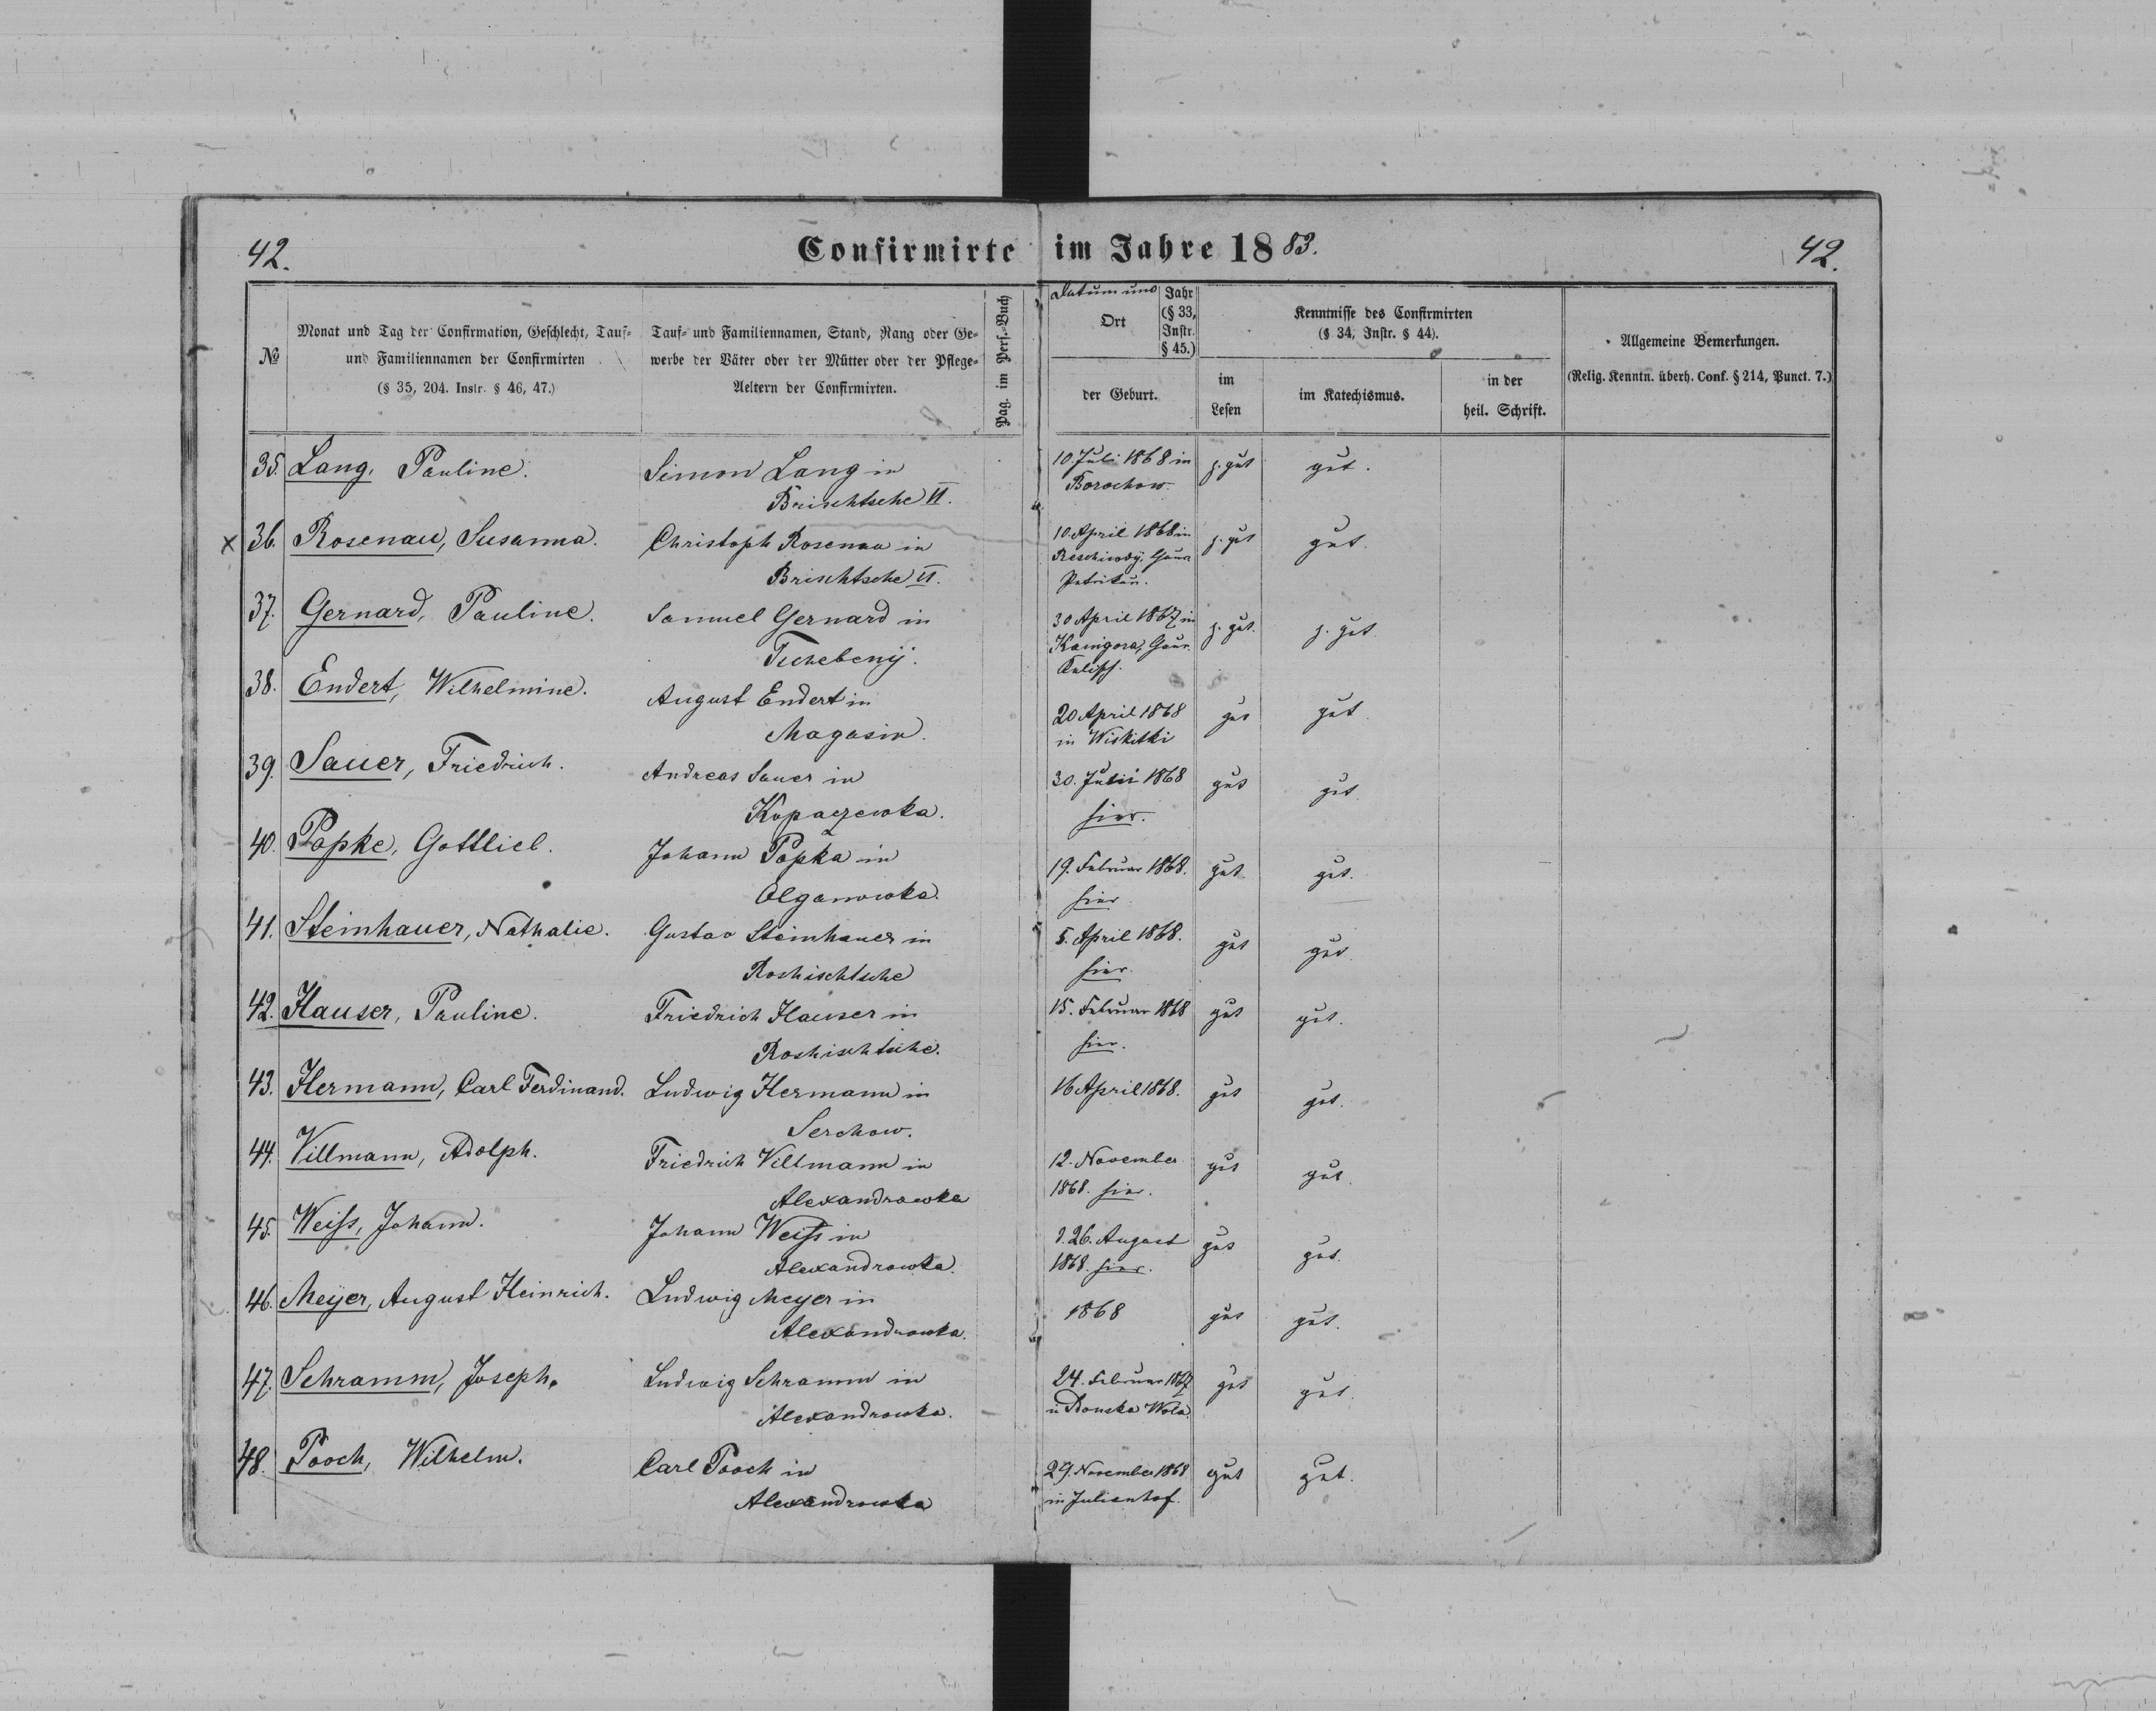 42.
Confirmirte im Jahre 1883.
42.
No
Monat und Tag der Confirmation, Geschlecht, Tauf-
und Familiennamen der Confirmirten
(§ 35, 204. Instr. § 46, 47.)
Tauf- und Familiennamen, Stand, Rang oder Ge-
werbe der Väter oder der Mütter oder der Pflege-
Aeltern der Confirmirten.
Pag. im Pers.-Buch
Datum und
Ort
Jahr
(§ 33,
Instr.
§ 45.)
der Geburt.
Kenntnisse des Confirmirten
(§ 34, Instr. § 44).
im
Lesen
im Katechismus.
in der
heil. Schrift.
Allgemeine Bemerkungen.
(Relig. Kenntn. überh. Conf. § 214, Punct. 7.)
35. Lang, Pauline. Simon Lang in 10. Juli 1868 in z. gut gut.
Brischtsche II. Borochow.
x 36. Rosenau, Susanna. Christoph Rosenau in 10. April 1868 in z. gut gut.
Brischtsche II. Gouv.
Petrikau.
37. Gernard, Pauline. Samuel Gernard in 30 April 1867 in z. gut. z. gut.
Tschebenij. Kamgora, Gouv.
Kalisch.
38. Endert, Wilhelmine. August Endert in 20 April 1868 gut gut.
Magasin. in Wiskitki
39. Sauer, Friedrich. Andreas Sauer in 30. Juli 1868 gut gut.
Kopaczewka. hier.
40. Papke, Gottlieb. Johann Papka in 19. Februar 1868. gut gut.
Olganowka. hier.
41. Steinhauer, Nathalie. Gustav Steinhauer in 5. April 1868. gut gut.
Roshischtsche hier.
42. Hauser, Pauline. Friedrich Hauser in 15. Februar 1868 gut gut.
Roshischtsche. hier.
43. Hermann, Carl Ferdinand. Ludwig Hermann in 16 April 1868. gut gut.
Serchow.
44. Villmann, Adolph. Friedrich Villmann in 12. November gut gut.
Alexandrowka 1868. hier.
45. Weiss, Johann. Johann Weiss in d. 26. August gut gut.
Alexandrowka. 1868. hier.
46. Meyer, August Heinrich. Ludwig Meyer in 1868 gut gut.
Alexandrowka.
47. Schramm, Joseph. Ludwig Schramm in 24. Februar 1867 gut gut.
Alexandrowka. Wola.
48. Pooch, Wilhelm. Carl Pooch in 29. November 1868 gut gut.
Alexandrowka in Julienhof.